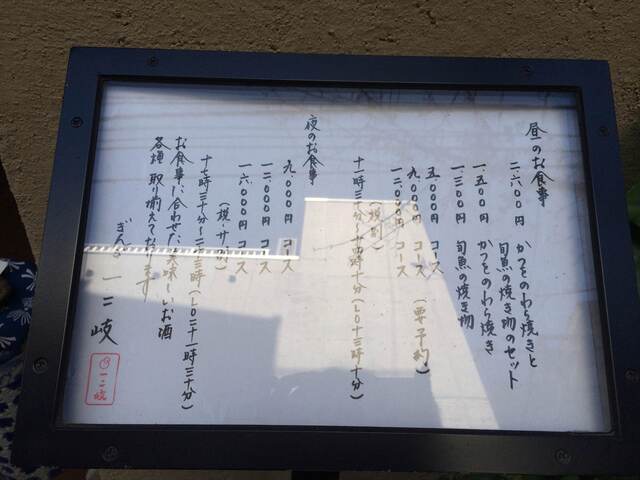 昼のお食事
二、六〇〇円 かつをのわら焼きと
旬魚の焼き物のセット
一、五〇〇円 かつをのわら焼き
一、三〇〇円 旬魚の焼き物
五、〇〇〇円 コース (要予約)
九、〇〇〇円 コース
一二、〇〇〇円 コース
(税別)
十一時三十分〜十四時十分(LO十三時十分)
夜のお食事
九、〇〇〇円 コース
一二、〇〇〇円 コース
一六、〇〇〇円 コース
(税・サ別)
十七時三十分〜二十三時(LO二十一時三十分)
お食事に合わせた美味しいお酒
各種取り揃えております
ぎんざ 一二岐
一二岐